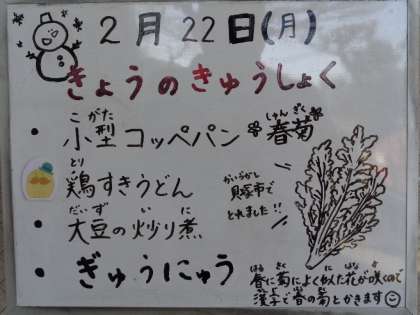 2月22日(月)
きょうのきゅうしょく
こがた
・小型コッペパン
しゅんぎく
春菊
とり
鶏すきうどん
かいづかし
貝塚市で
とれました!!
だいず い に
・大豆の炒り煮
・ぎゅうにゅう
はる きく に はな さ
春に菊によく似た花が咲くので
漢字で春の菊とかきます